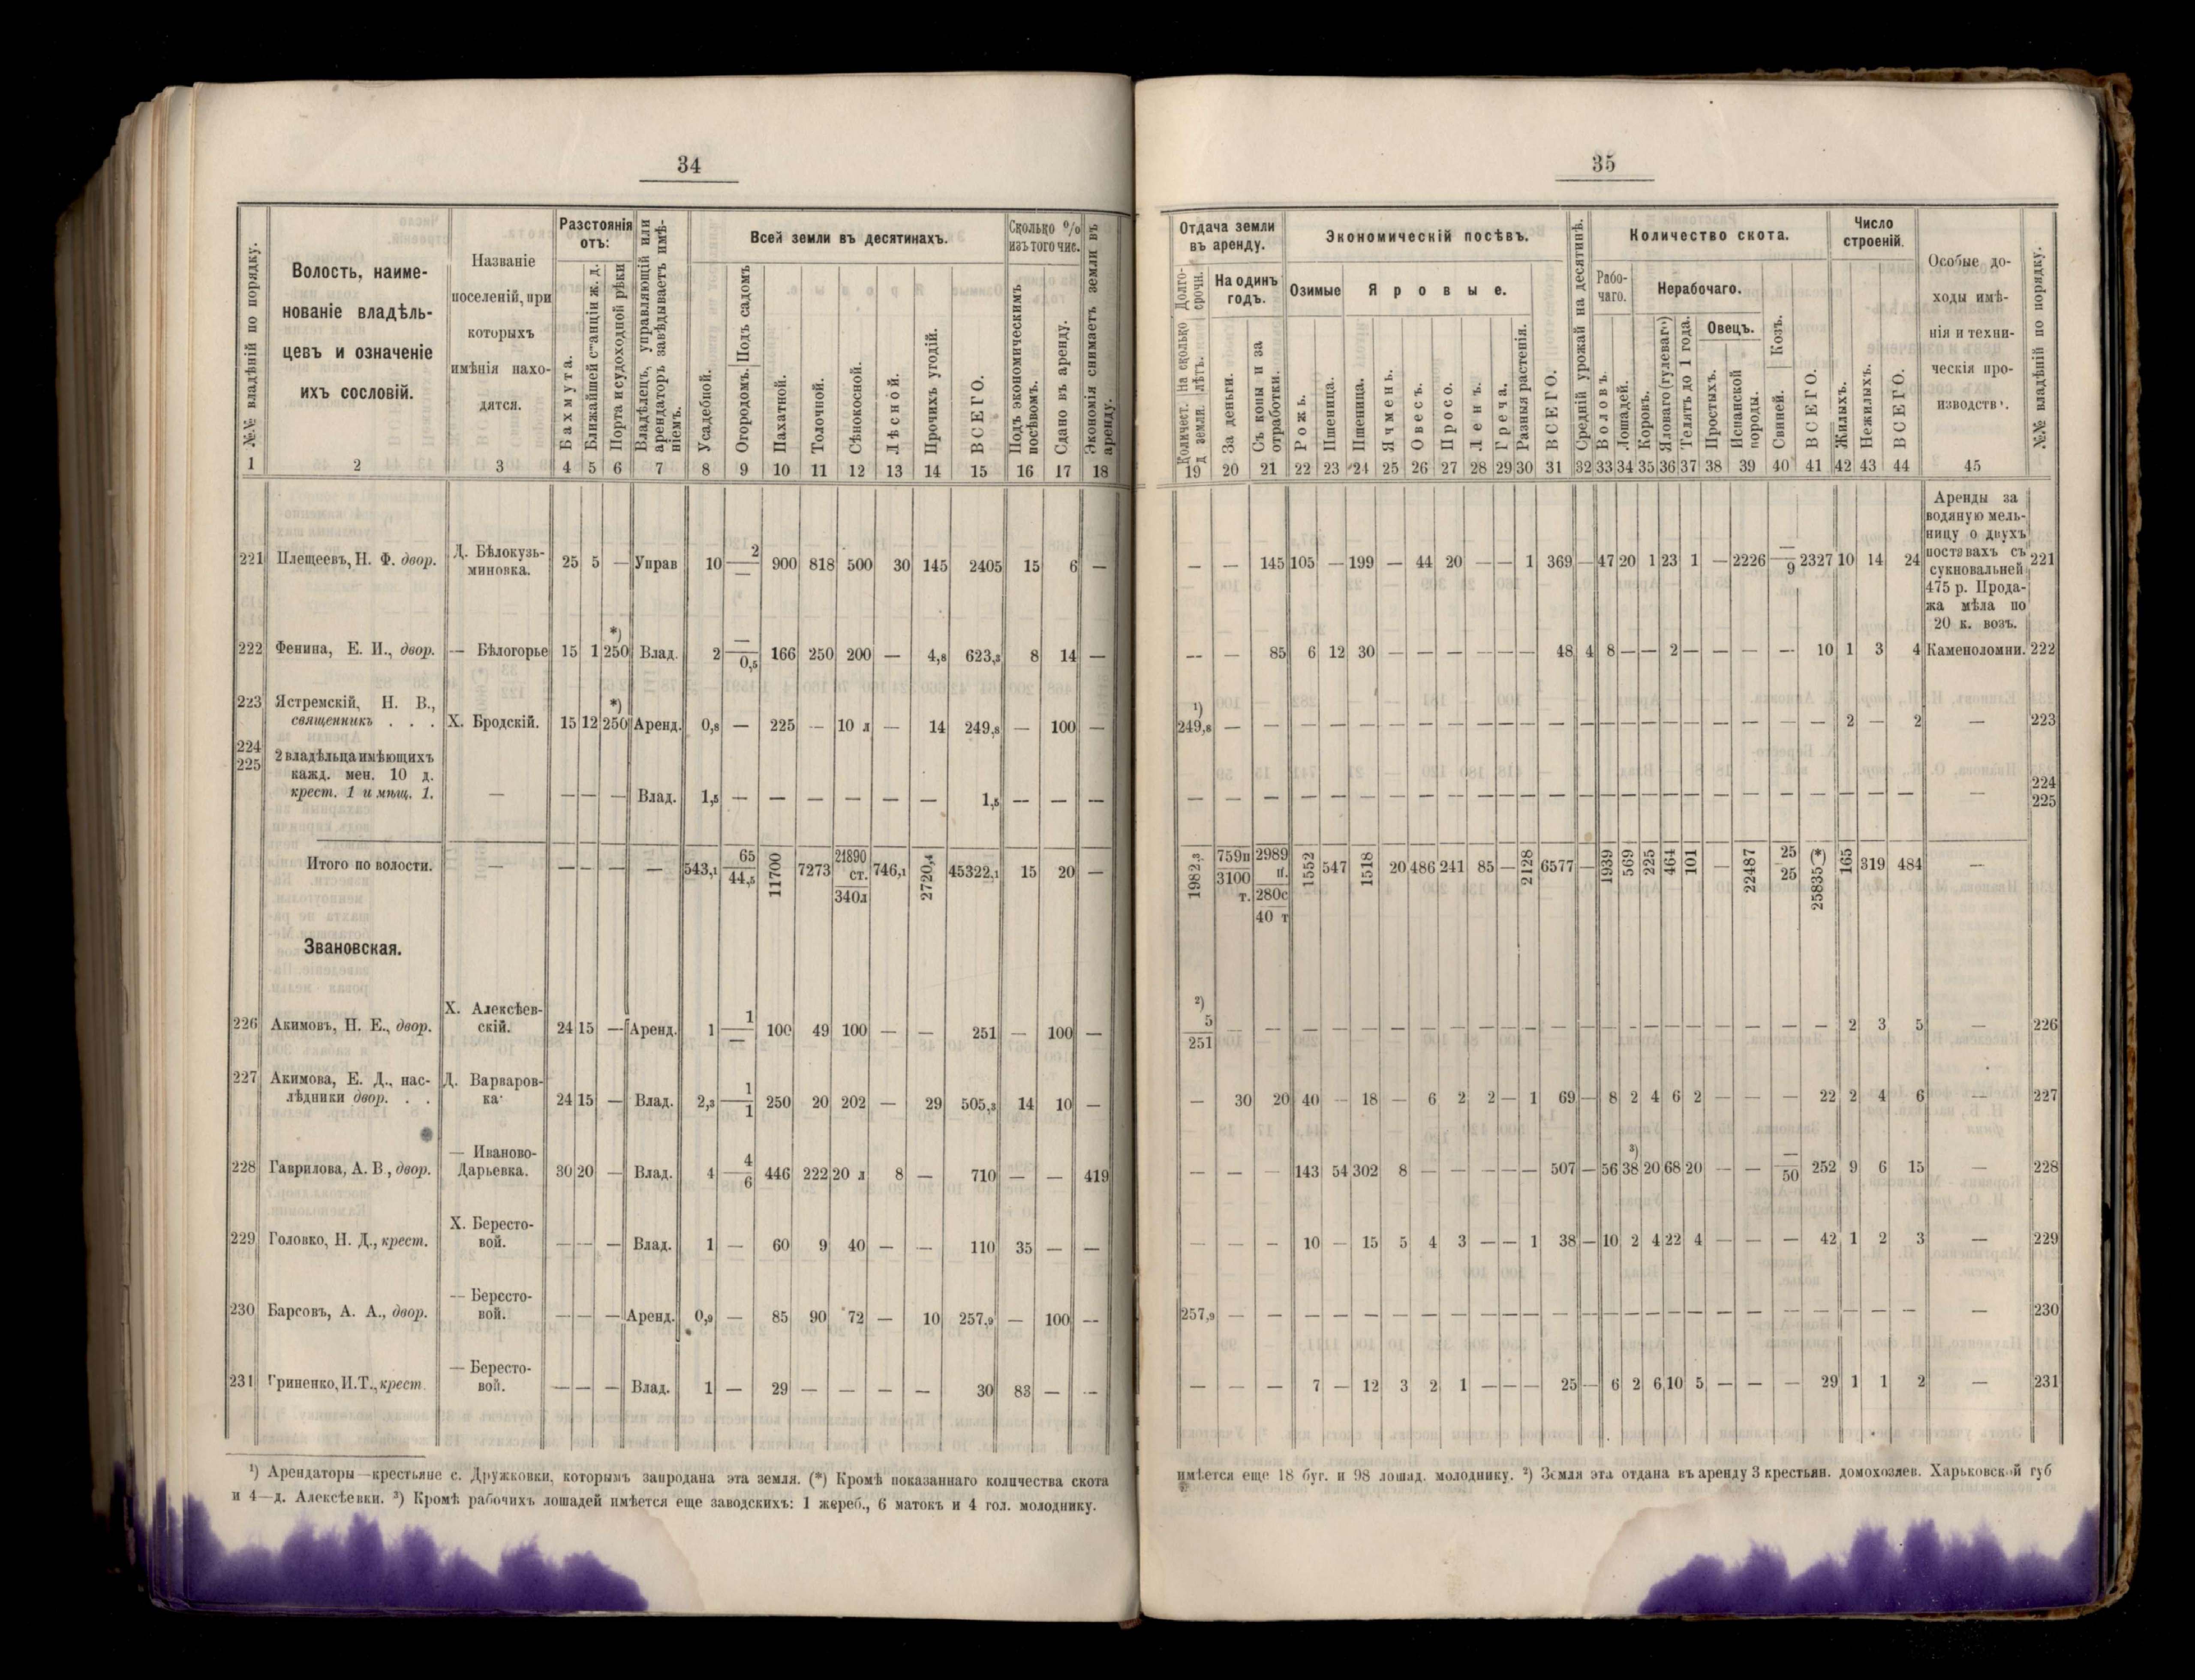 34
№№ владѣній по порядку.
Волость, наиме-
нованіе владѣль-
цевъ и означеніе
ихъ сословій.
Названіе
поселеній, при
которыхъ
имѣнія нахо-
дятся.
Разстоянія
отъ:
Бахмута.
Ближайшей станціи ж. д.
Порта и судоходной рѣки
Владѣлецъ, управляющій или
арендаторъ завѣдываетъ имѣ-
ніемъ.
Всей земли въ десятинахъ.
Усадебной.
Огородомъ. Подъ садомъ
Пахатной.
Толочной.
Сѣнокосной.
Лѣсной.
Прочихъ угодій.
ВСЕГО.
Сколько %
изъ того чис.
Подъ экономическимъ
посѣвомъ.
Сдано въ аренду.
Экономія снимаетъ земли въ
аренду.
1 2 3 4 5 6 7 8 9 10 11 12 13 14 15 16 17 18
221 Плещеевъ, Н. Ф. двор. Д. Бѣлокузь-
миновка. 25 5 — Управ 10 2/— 900 818 500 30 145 2405 15 6 —
222 Фенина, Е. И., двор. — Бѣлогорье 15 1 *) 250 Влад. 2 —/0,5 166 250 200 — 4,8 623,3 8 14 —
223 Ястремскій, Н. В.,
священникъ . . . Х. Бродскій. 15 12 *) 250 Аренд. 0,8 — 225 — 10 л — 14 249,8 — 100 —
224
225 2 владѣльца имѣющихъ
кажд. мен. 10 д.
крест. 1 и мѣщ. 1. — — — — Влад. 1,5 — — — — — — 1,5 — — —
Итого по волости. — — — — — 543,1 65/44,5 11700 7273 21890 ст. 340л 746,1 2720,4 45322,1 15 20 —
Звановская.
226 Акимовъ, Н. Е., двор. Х. Алексѣев-
скій. 24 15 — Аренд. 1 1/— 100 49 100 — — 251 — 100 —
227 Акимова, Е. Д., нас-
лѣдники двор. . . Д. Варваров-
ка. 24 15 — Влад. 2,3 1/1 250 20 202 — 29 505,3 14 10 —
228 Гаврилова, А. В., двор. — Иваново-
Дарьевка. 30 20 — Влад. 4 4/6 446 222 20 л 8 — 710 — — 419
229 Головко, Н. Д., крест. Х. Бересто-
вой. — — — Влад. 1 — 60 9 40 — — 110 35 — —
230 Барсовъ, А. А., двор. — Бересто-
вой. — — — Аренд. 0,9 — 85 90 72 — 10 257,9 — 100 —
231 Гриненко, И. Т., крест. — Бересто-
вой. — — — Влад. 1 — 29 — — — — 30 83 — —
¹) Арендаторы—крестьяне с. Дружковки, которымъ запродана эта земля. (*) Кромѣ показаннаго количества скота
и 4—д. Алексѣевки. ³) Кромѣ рабочихъ лошадей имѣется еще заводскихъ: 1 жереб., 6 матокъ и 4 гол. молоднику.
35
Отдача земли
въ аренду.
Количест. На сколько Долго-
д земли. лѣтъ. срочн.
На одинъ
годъ.
За деньги.
Съ копы и за
отработки.
Экономическій посѣвъ.
Озимые
Яровые.
Рожь.
Пшеница.
Пшеница.
Ячмень.
Овесъ.
Просо.
Ленъ.
Греча.
Разныя растенія.
ВСЕГО.
Средній урожай на десятинѣ.
Количество скота.
Рабо-
чаго.
Нерабочаго.
Воловъ.
Лошадей.
Коровъ.
Яловаго (гулеваго)
Телятъ до 1 года.
Овецъ.
Простыхъ.
Испанской
породы.
Свиней. Козъ.
ВСЕГО.
Число
строеній.
Жилыхъ.
Нежилыхъ.
ВСЕГО.
Особые до-
ходы имѣ-
нія и техни-
ческія про-
изводств.
№№ владѣній по порядку.
19 20 21 22 23 24 25 26 27 28 29 30 31 32 33 34 35 36 37 38 39 40 41 42 43 44 45
— — 145 105 — 199 — 44 20 — — 1 369 — 47 20 1 23 1 — 2226 —/9 2327 10 14 24 Аренды за
водяную мель-
ницу о двухъ
поставахъ съ
сукновальней
475 р. Прода-
жа мѣла по
20 к. возъ. 221
— — 85 6 12 30 — — — — — — 48 4 8 — — 2 — — — — 10 1 3 4 Каменоломни. 222
¹) 249,8 — — — — — — — — — — — — — — — — — — — — — — 2 — 2 — 223
— — — — — — — — — — — — — — — — — — — — — — — — — — — 224
225
1982,3 759п 3100 т. 2989 п. 280с 40 т 1552 547 1518 20 486 241 85 — 2128 6577 — 1939 569 225 464 101 — 22487 25/25 25835(*) 165 319 484 —
²) 5/251 — — — — — — — — — — — — — — — — — — — — — — 2 3 5 — 226
— 30 20 40 — 18 — 6 2 2 — 1 69 — 8 2 4 6 2 — — — 22 2 4 6 — 227
— — — 143 54 302 8 — — — — — 507 — 56 ³) 38 20 68 20 — — —/50 252 9 6 15 — 228
— — — 10 — 15 5 4 3 — — 1 38 — 10 2 4 22 4 — — — 42 1 2 3 — 229
257,9 — — — — — — — — — — — — — — — — — — — — — — — — — — 230
— — — 7 — 12 3 2 1 — — — 25 — 6 2 6 10 5 — — — 29 1 1 2 — 231
имѣется еще 18 буг. и 98 лошад. молоднику. ²) Земля эта отдана въ аренду 3 крестьян. домохозяев. Харьковской губ